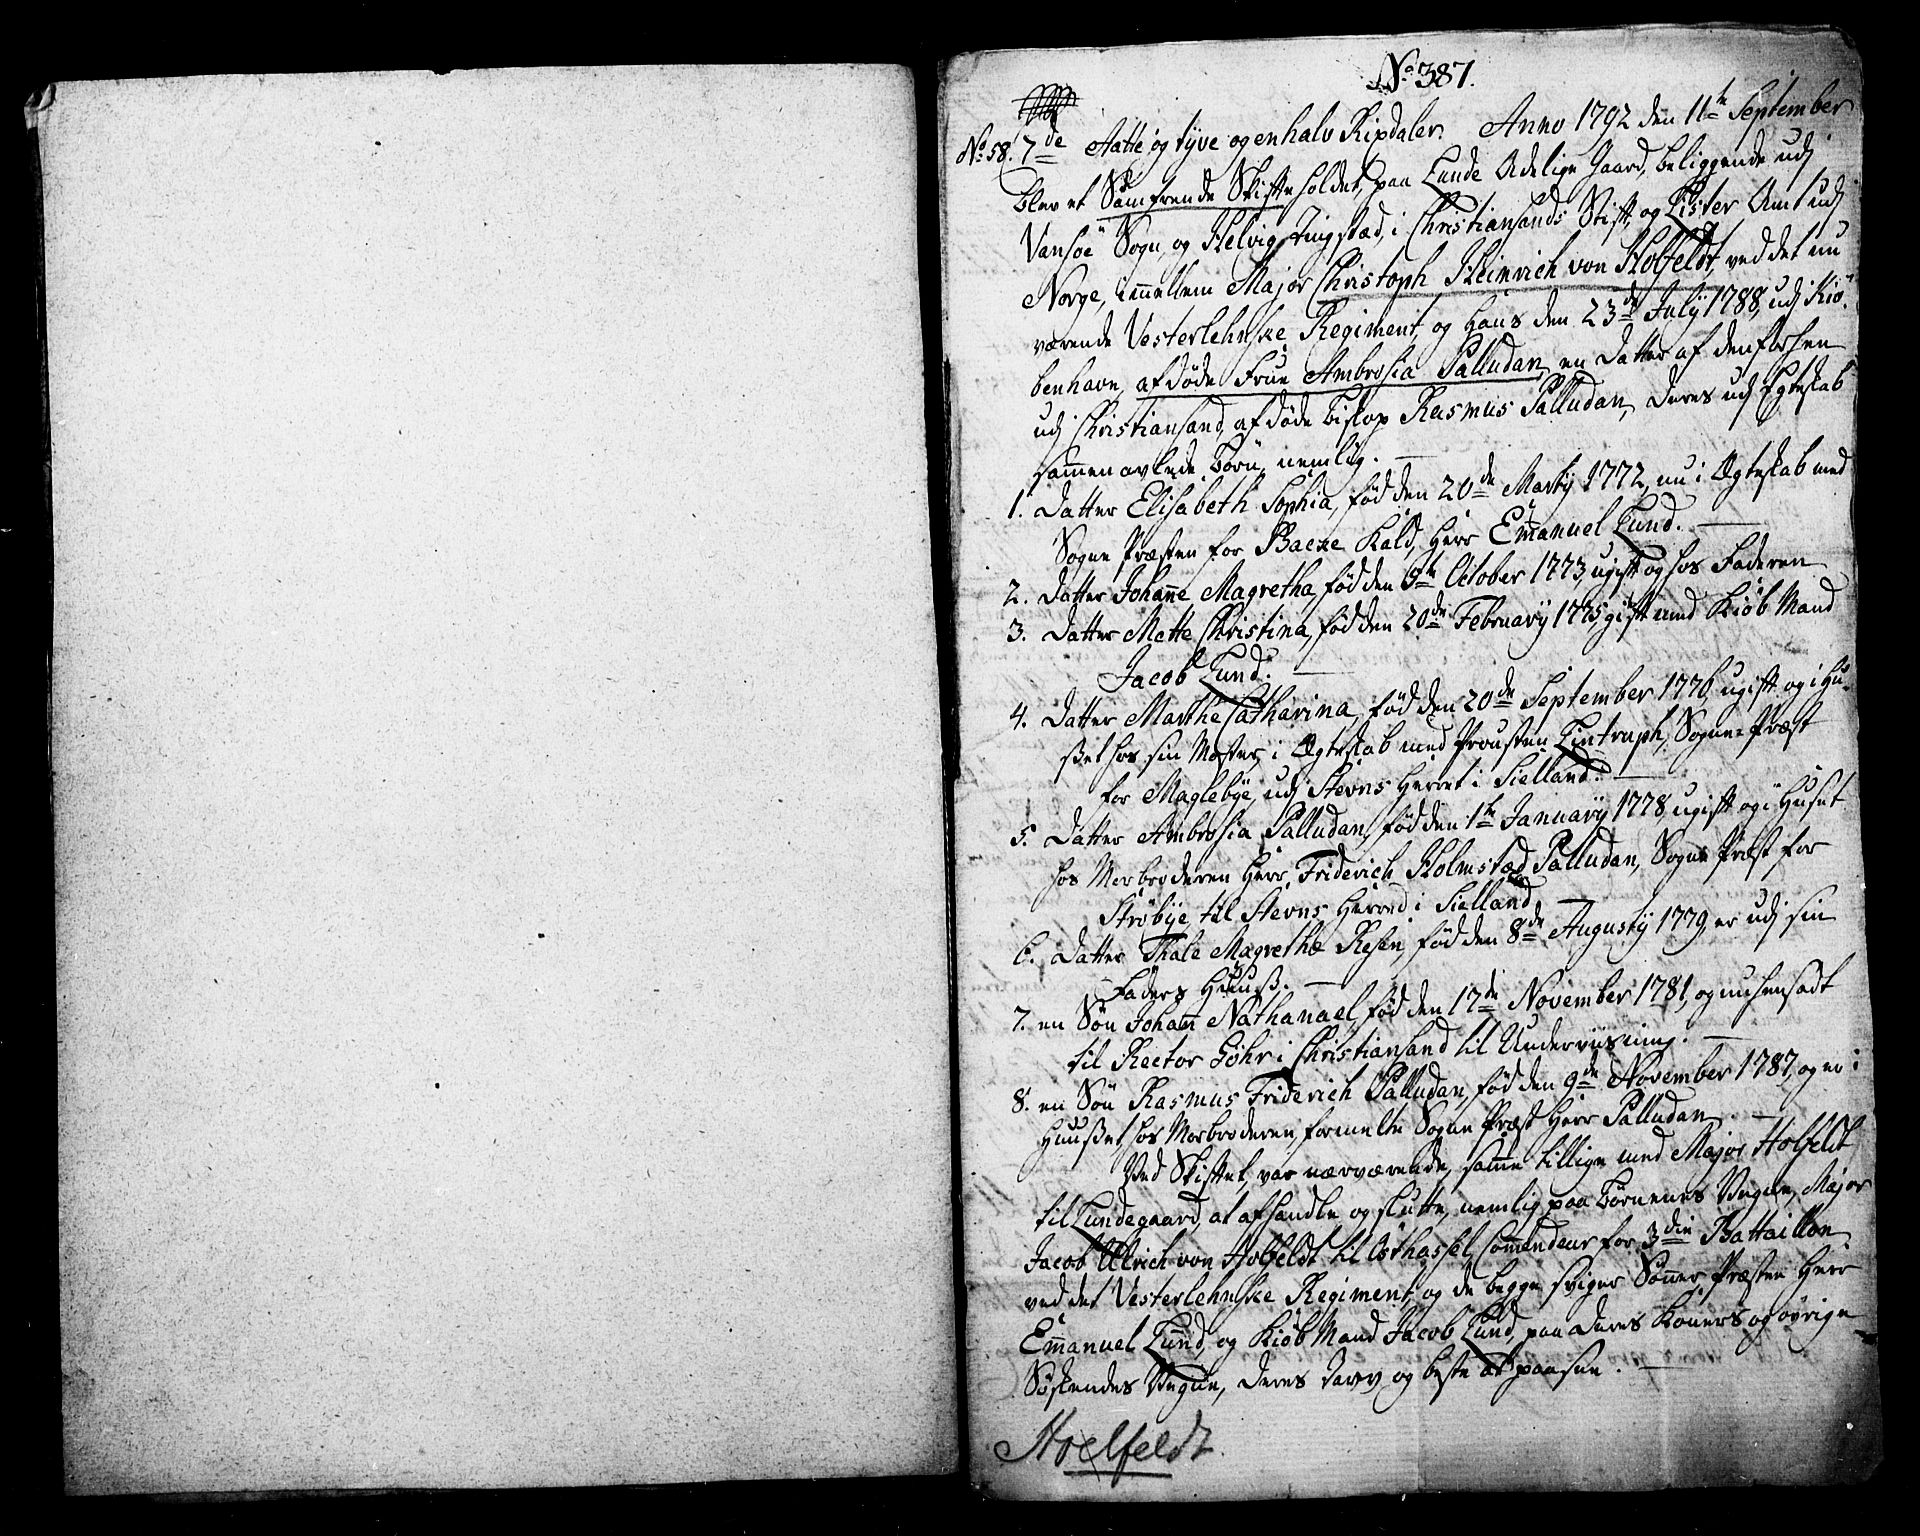 No 387.
No 58. 7de Aatte og tyve og en halv Rixdaler. Anno 1792 den 11te September
blev et Samfrende Skifte holdet, paa Lunde Adelige Gaard, beliggende udj
Vansøe Sogn, og Helvig Tingstæd, i Christiansands Stift, og Lister Amt udj
Norge, imellem Major Christoph Heinrich von Holfeldt, ved det nu
værende Vesterlehnske Regiment, og Hans den 23de Julÿ 1788, udj Kiø-
benhavn, afdøde Frue Ambrosia Palludan, en Datter af den forhen
udj Christiansand, afdøde Biskop Rasmus Palludan, Deres udj Egteskab
sammen avlede Børn, nemlig.
1. Datter Elisabeth Sophia, fød den 20de Martÿ 1772, nu i Ægteskab med
Sogne Præsten for Bakke Kald, Herr Emanuel Lund.
2. Datter Johanne Magretha, fød den 5te October 1773, ugift og hos Faderen
3. Datter Mette Christina, fød den 20de Februarÿ 1775, gift med Kiøb Mand
Jacob Lund.
4. Datter Marthe Catharina, fød den 20de September 1776, ugift og i Hu-
set hos sin Moster, i Ægteskab med Provsten Lintruph, Sogne-Præst
for Maglebÿe, udj Stevns Herret i Sielland.
5. Datter Ambrosia Palludan, fød den 1te Januarÿ 1778, ugift og i Huset
hos Morbroderen Herr Friderich Holmsted Palludan, Sogne Præst for
Strøbÿe til Stevns Herred i Sielland.
6. Datter Thale Magrethe Resen, fød den 8de Augustÿ 1779, er udj sin
Faders Huus.
7. en Søn Johan Nathanael, fød den 17de November 1781, og nu hensadt
til Rector Søhr i Christiansand til Underviisning.
8. en Søn Rasmus Friderich Palludan, fød den 9de November 1787, og er i
Huuset, hos Morbroderen, formelte Sogne Præst Herr Palludan.
Ved Skiftet, var nærværende, samme tillige med Major Holfeldt
til Lundegaard, at afhandle og slutte, nemlig, paa Børnenes Vegne, Major
Jacob Ulrich von Holfeldt til Østhassel, Commendeur for 3die Battaillon
ved det Vesterlehnske Regiment, og de begge Sviger Sønner, Præsten Herr
Emanuel Lund, og Kiøb Mand Jacob Lund, paa Deres Koners og øvrige
Søskendes Vegne, Deres Tarv og beste at paasee.
Hoelfeldt.